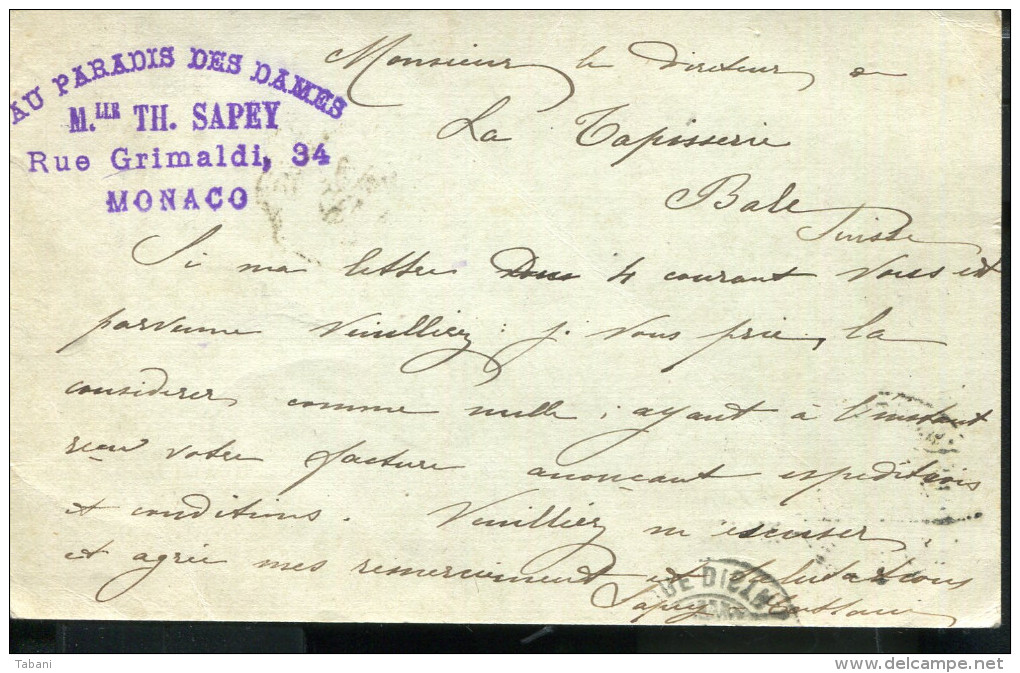 AU PARADIS DES DAMES
M.LLE TH. SAPEY
Rue Grimaldi, 34
MONACO
Monsieur le Directeur
La Tapisserie
Bale
Suisse
Si ma lettre 4 courant vous est
parvenue Veuilliez je vous prie, la
considerer comme nulle, ayant à l'instant
reçu votre facture anonçant expeditions
et conditions. Veuilliez m'escuser
et agrée mes remerciement et salutations
Sapey
Tabani
delcampe.net